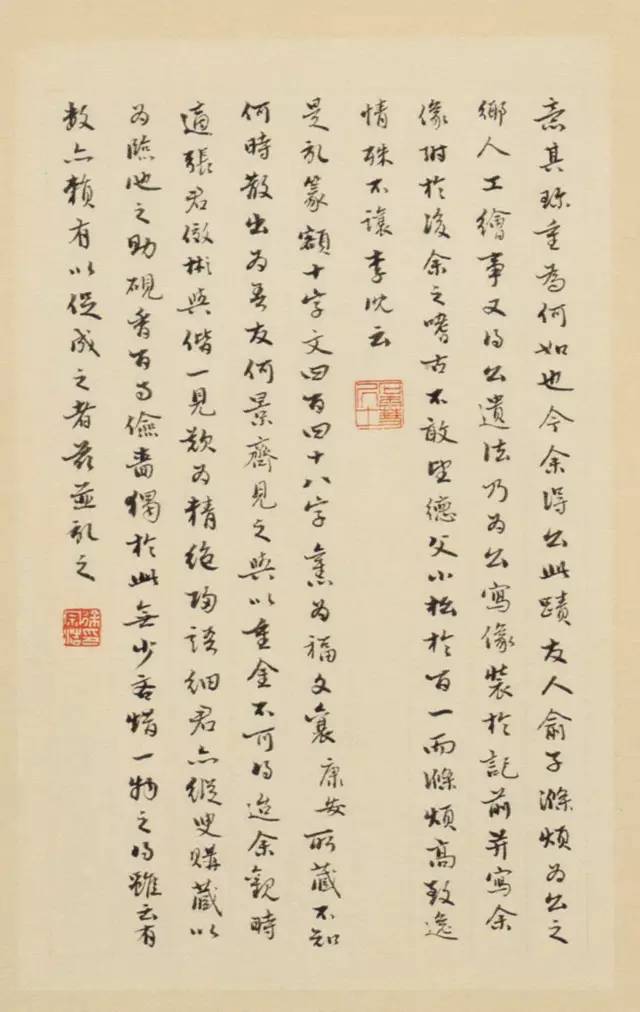 意其珍重為何如也今余得公此蹟友人俞子滌煩為公之
鄉人工繪事又得公遺法乃為公寫像裝於記前并寫余
像附於後余之嗜古不敢望德父小松於百一而滌煩高致逸
情殊不讓李沈云
是記篆額十字文四百四十八字舊為福文襄康安所藏不知
何時散出為吾友何景齋見之與以重金不可得迨余觀時
適張君俶彬與偕一見歎為精絕歸語細君亦縱臾購藏以
為臨池之助硯香百事儉嗇獨於此無少吝惜一物之得雖云有
數亦賴有以促成之者茲並記之
徐印宗浩